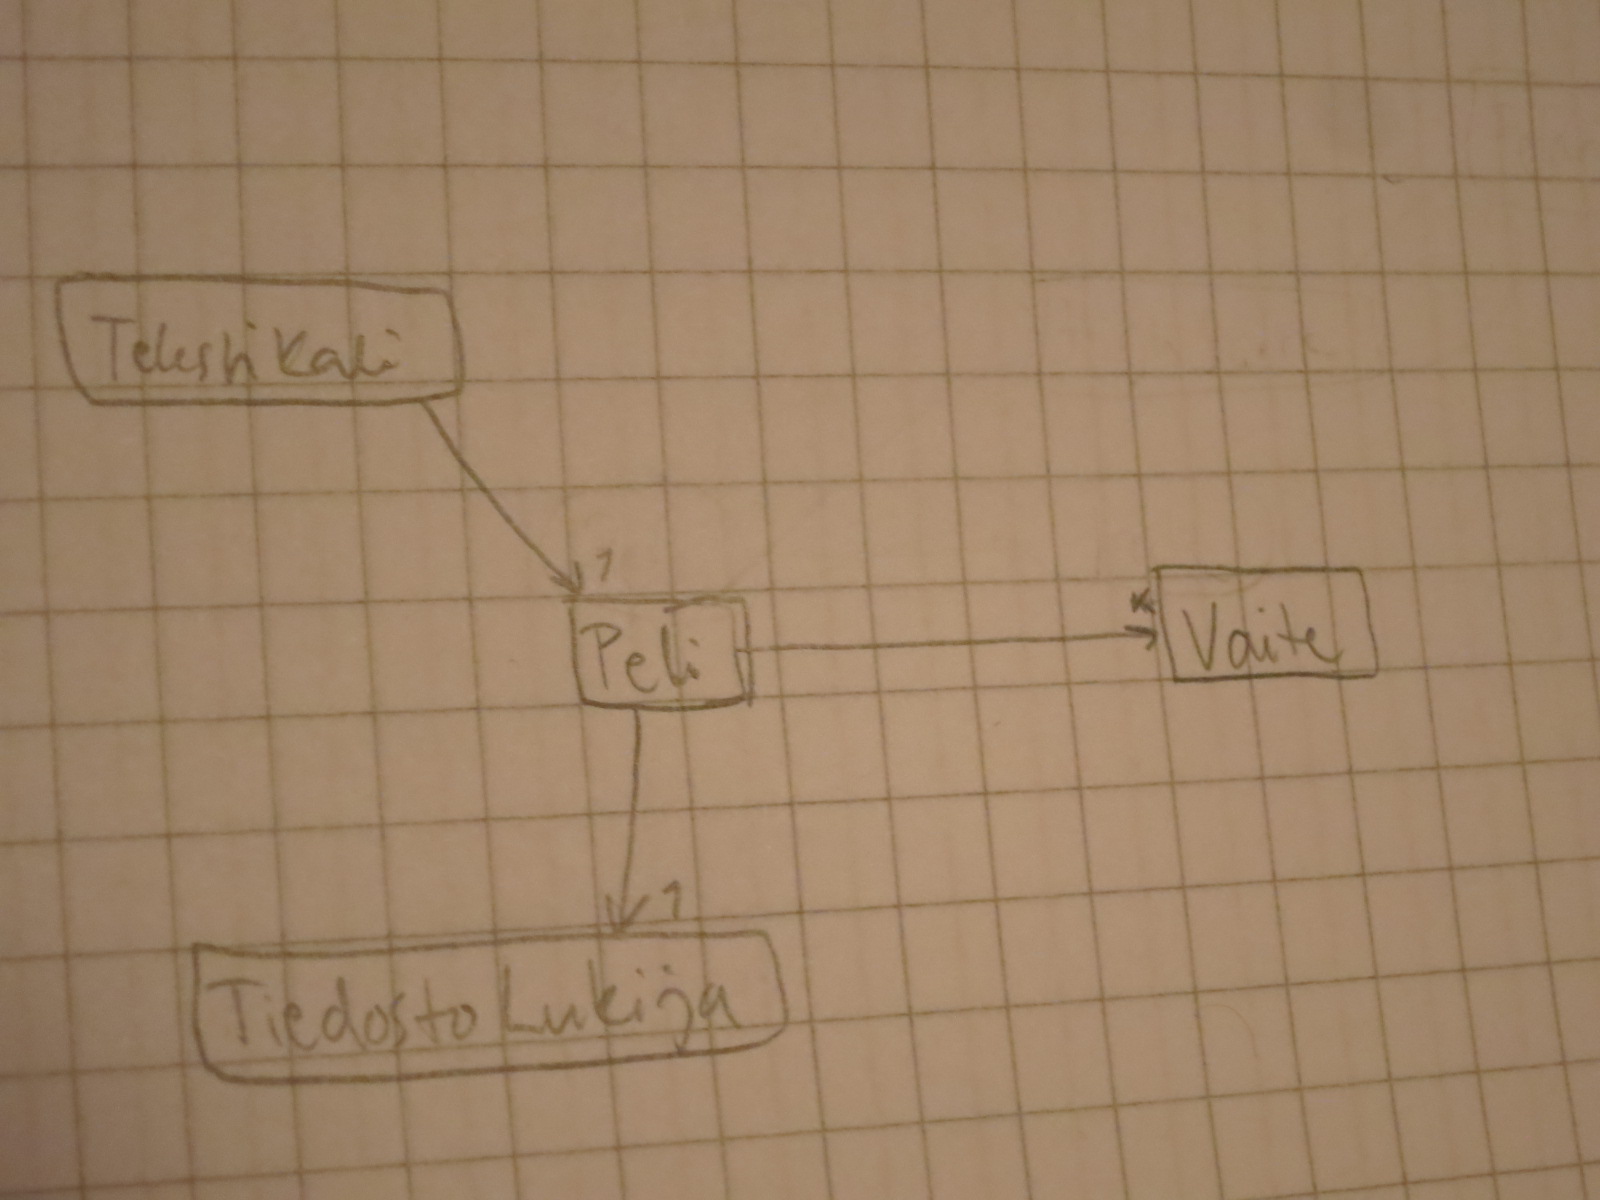 Tekstikäli
1
Peli
*
Väite
1
TiedostoLukija